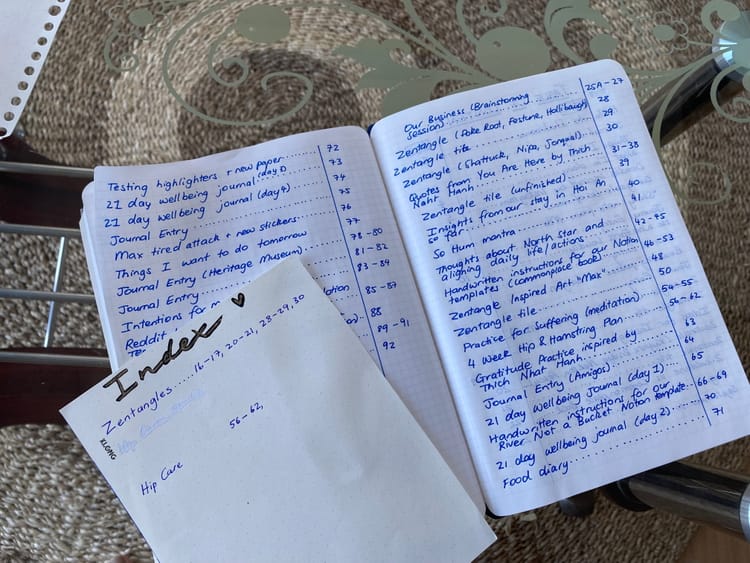 Testing highlighters + new paper ....... 72
21 day wellbeing journal (day 3) ....... 73
21 day wellbeing journal (day 4) ....... 74
Journal Entry ....... 75
Max tired attack + new stickers ....... 76
Things I want to do tomorrow ....... 77
Journal Entry (Heritage Museum) ....... 78-80
Journal Entry ....... 81-82
Intentions for 83-84
Reddit 85-87
88
89-91
92
Index ♥
Zentangles ...... 16-17, 20-21, 28-29, 30
KLONG
56-62,
Hip Care
Our Business (Brainstorming
Session) ....... 25A-27
Zentangle (Joke Root, Festune, Hollibaugh) 28
Zentangle tile ....... 29
Zentangle (Shattuck, Nipa, Jonqual) ....... 30
Quotes from You Are Here by Thich
Naht Hanh ....... 31-38
Zentangle tile (unfinished) ....... 39
Insights from our stay in Hoi An
so far ....... 40
So Hum mantra ....... 41
Thoughts about North Star and
aligning daily life/actions ....... 42-45
Handwritten instructions for our Notion
templates (commonplace book) ....... 46-53
Zentangle Inspired Art "Max" ....... 48
Zentangle tile ....... 50
Practice for Suffering (meditation) ....... 54-55
4 Week Hip & Hamstring Plan ....... 56-62
Gratitude Practice inspired by
Thich Nhat Hanh ....... 63
Journal Entry (Amigos) ....... 64
21 day wellbeing Journal (day 1) ....... 65
Handwritten instructions for our
River Not a Bucket Notion template ....... 66-69
21 day wellbeing journal (day 2) ....... 70
Food diary ....... 71